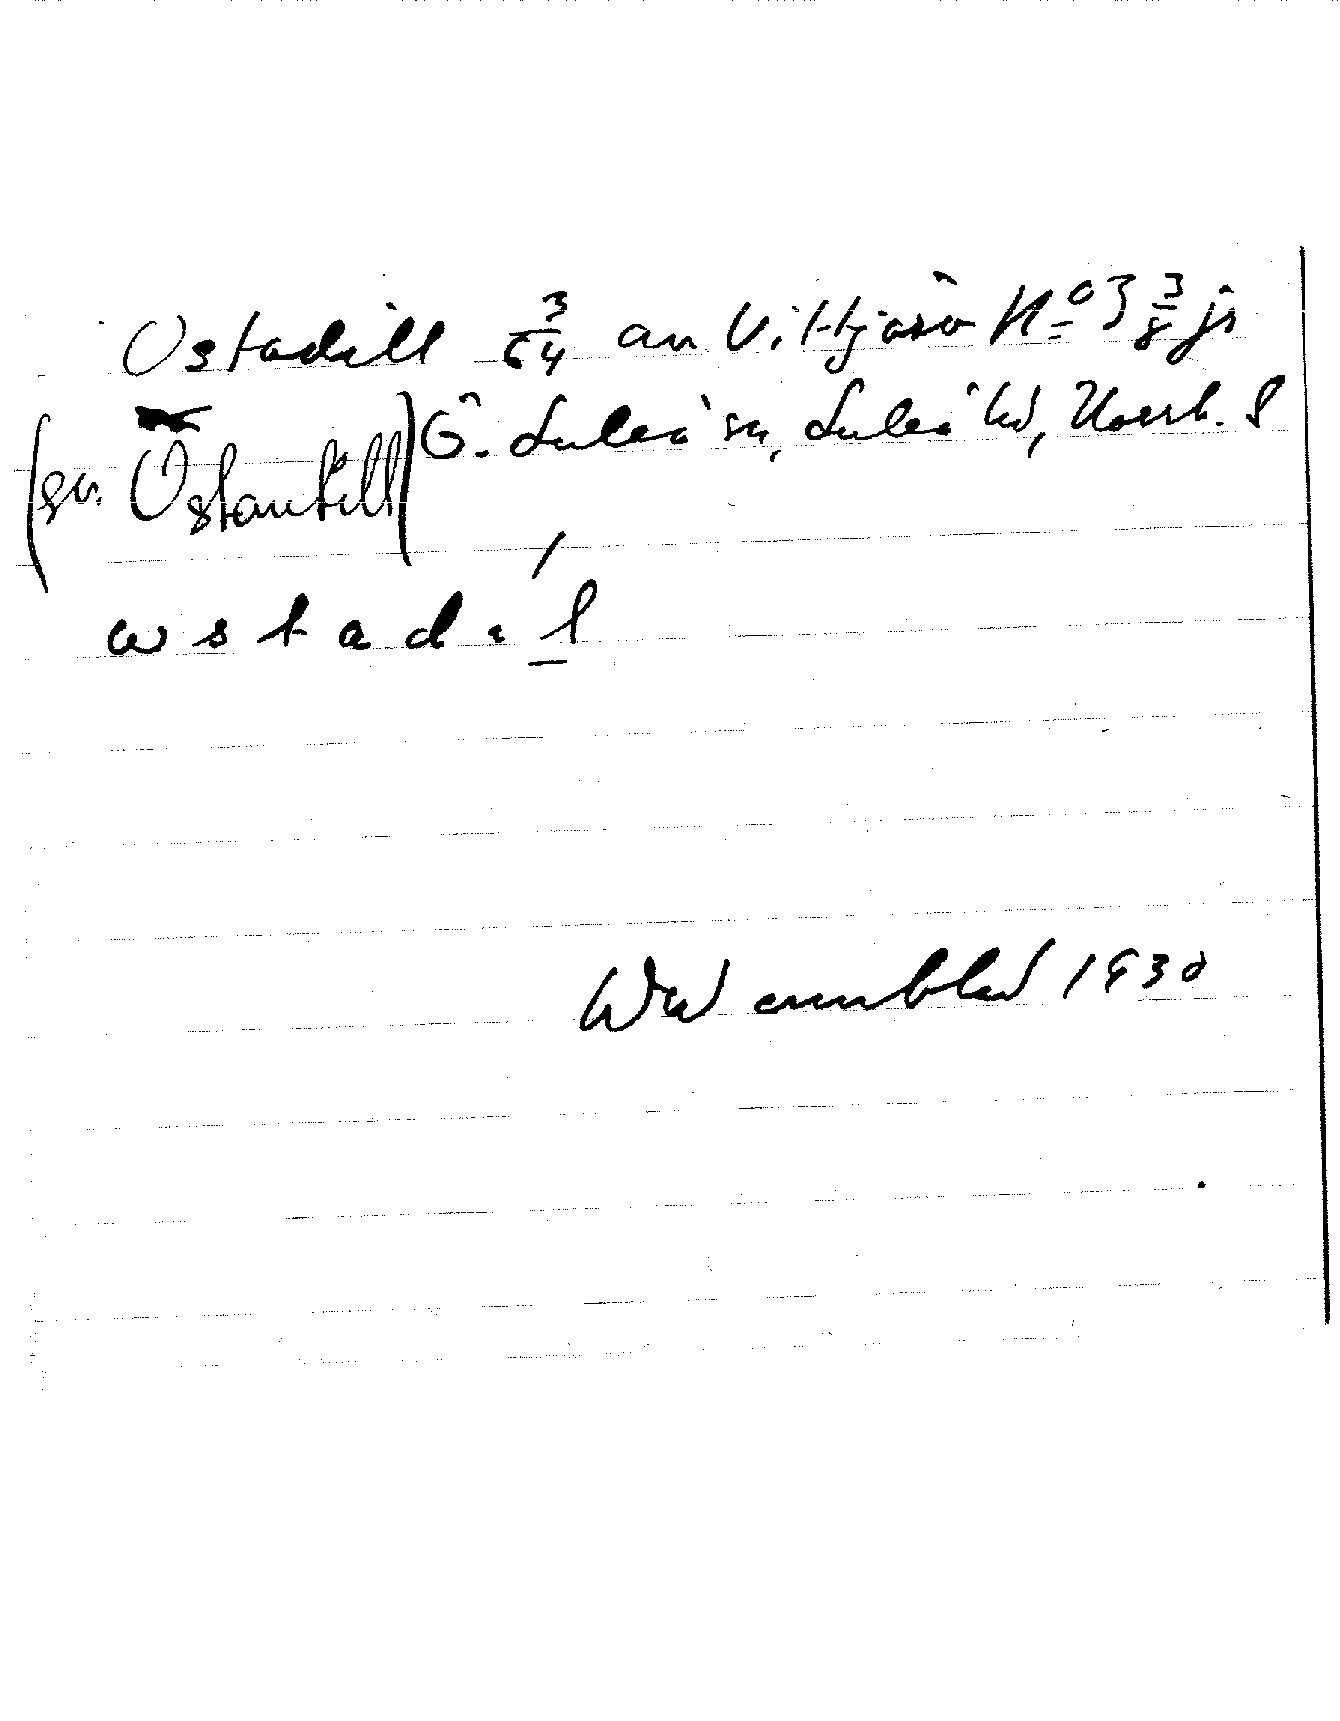 Ostadill 3/64 av Vittjärv No 3 3/8 js
(sv. Östantill) Ö. Luleå sn, Luleå hd, Norrb. l
ωstad
1930